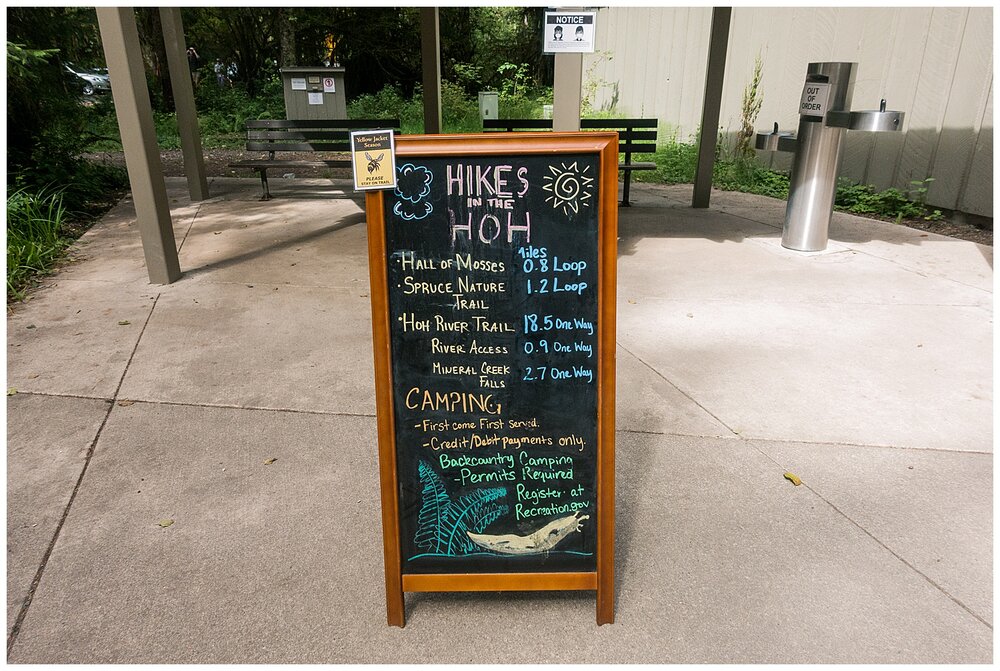 NOTICE
OUT
OF
ORDER
Yellow Jacket
Season
PLEASE
STAY ON TRAIL
HIKES
IN THE
HOH
Miles
• HALL OF MOSSES 0.8 Loop
• SPRUCE NATURE 1.2 Loop
TRAIL
• HOH RIVER TRAIL 18.5 One Way
RIVER ACCESS 0.9 One Way
MINERAL CREEK 2.7 One Way
FALLS
CAMPING
- First come First Served.
- Credit/Debit payments only.
Backcountry Camping
- Permits Required
Register at
Recreation.gov